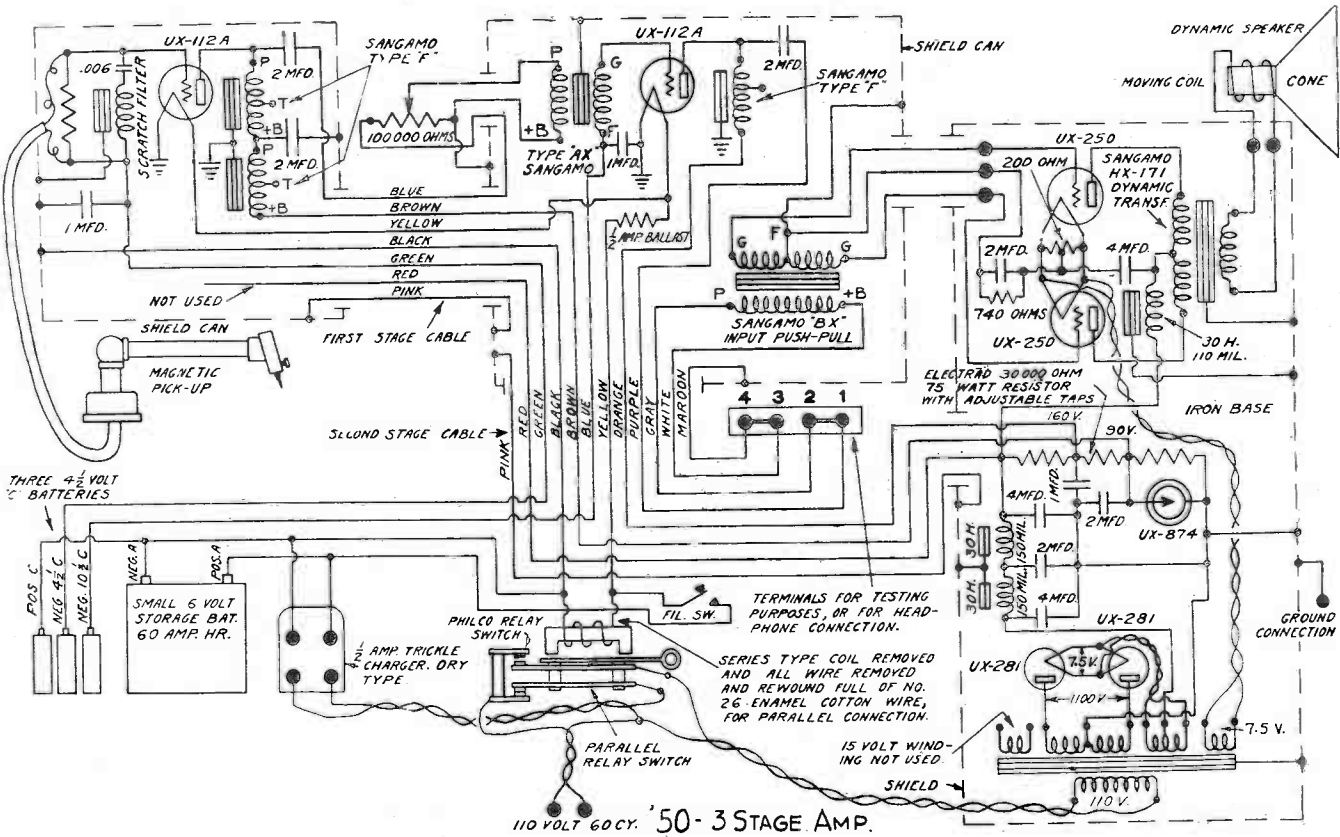 UX-112A
.006
SCRATCH FILTER
P
2 MFD.
+B
P
2 MFD.
+B
1 MFD.
SANGAMO
TYPE "F"
100000 OHMS
P
G
+B
F
TYPE "AX"
SANGAMO
1MFD.
UX-112A
2MFD.
SANGAMO
TYPE "F"
SHIELD CAN
DYNAMIC SPEAKER
MOVING COIL
CONE
BLUE
BROWN
YELLOW
BLACK
GREEN
RED
PINK
NOT USED
SHIELD CAN
FIRST STAGE CABLE
MAGNETIC
PICK-UP
½ AMP. BALLAST
G
F
G
P
+B
SANGAMO "BX"
INPUT PUSH-PULL
UX-250
200 OHM
SANGAMO
HX-171
DYNAMIC
TRANSF.
2MFD.
4 MFD.
740 OHMS
UX-250
30 H.
110 MIL.
ELECTRAD 30000 OHM
75 WATT RESISTOR
WITH ADJUSTABLE TAPS
IRON BASE
160V.
90V.
4 3 2 1
SECOND STAGE CABLE
PINK
RED
GREEN
BLACK
BROWN
BLUE
YELLOW
ORANGE
PURPLE
GRAY
WHITE
MAROON
4MFD.
1MFD.
2MFD.
UX-874
30H.
150MIL.
2MFD.
30H.
150MIL.
4MFD.
THREE 4½ VOLT
"C" BATTERIES
POS C
NEG 4½ C
NEG. 10½ C
NEG.A
POS.A
SMALL 6 VOLT
STORAGE BAT.
60 AMP. HR.
½ AMP. TRICKLE
CHARGER. DRY
TYPE.
PHILCO RELAY
SWITCH
FIL. SW.
TERMINALS FOR TESTING
PURPOSES, OR FOR HEAD-
PHONE CONNECTION.
SERIES TYPE COIL REMOVED
AND ALL WIRE REMOVED
AND REWOUND FULL OF NO.
26 ENAMEL COTTON WIRE,
FOR PARALLEL CONNECTION.
PARALLEL
RELAY SWITCH
UX-281
UX-281
7.5V.
1100V
GROUND
CONNECTION
15 VOLT WIND-
ING NOT USED.
7.5 V.
SHIELD
110 V.
110 VOLT 60CY.
'50-3 STAGE AMP.